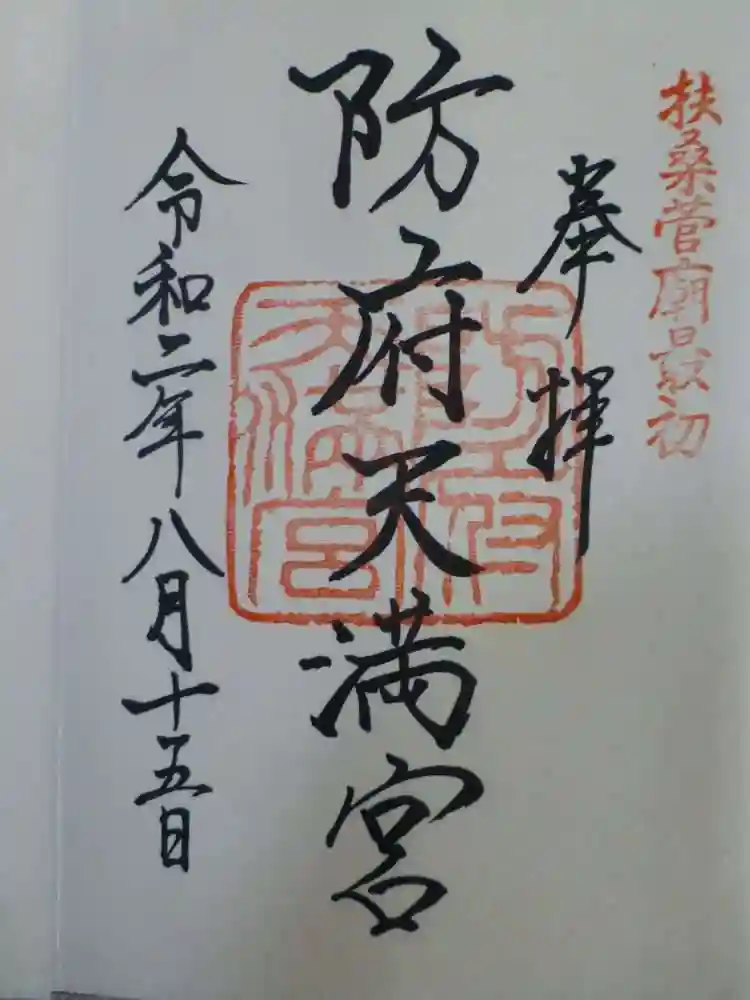 扶桑菅廟最初
奉拝
防府天満宮
防府
天満宮
令和二年八月十五日